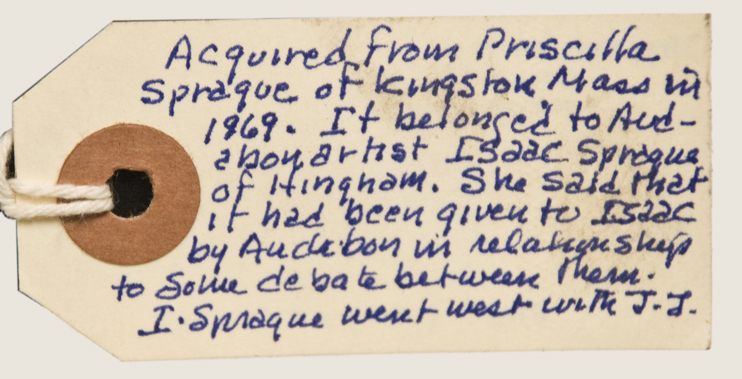 Acquired from Priscilla
Sprague of Kingston, Mass in
1969. It belonged to Aud-
abon artist Isaac Sprague
of Hingham. She said that
it had been given to Isaac
by Audibon in relationship
to some debate between them.
I. Sprague went west with J.J.